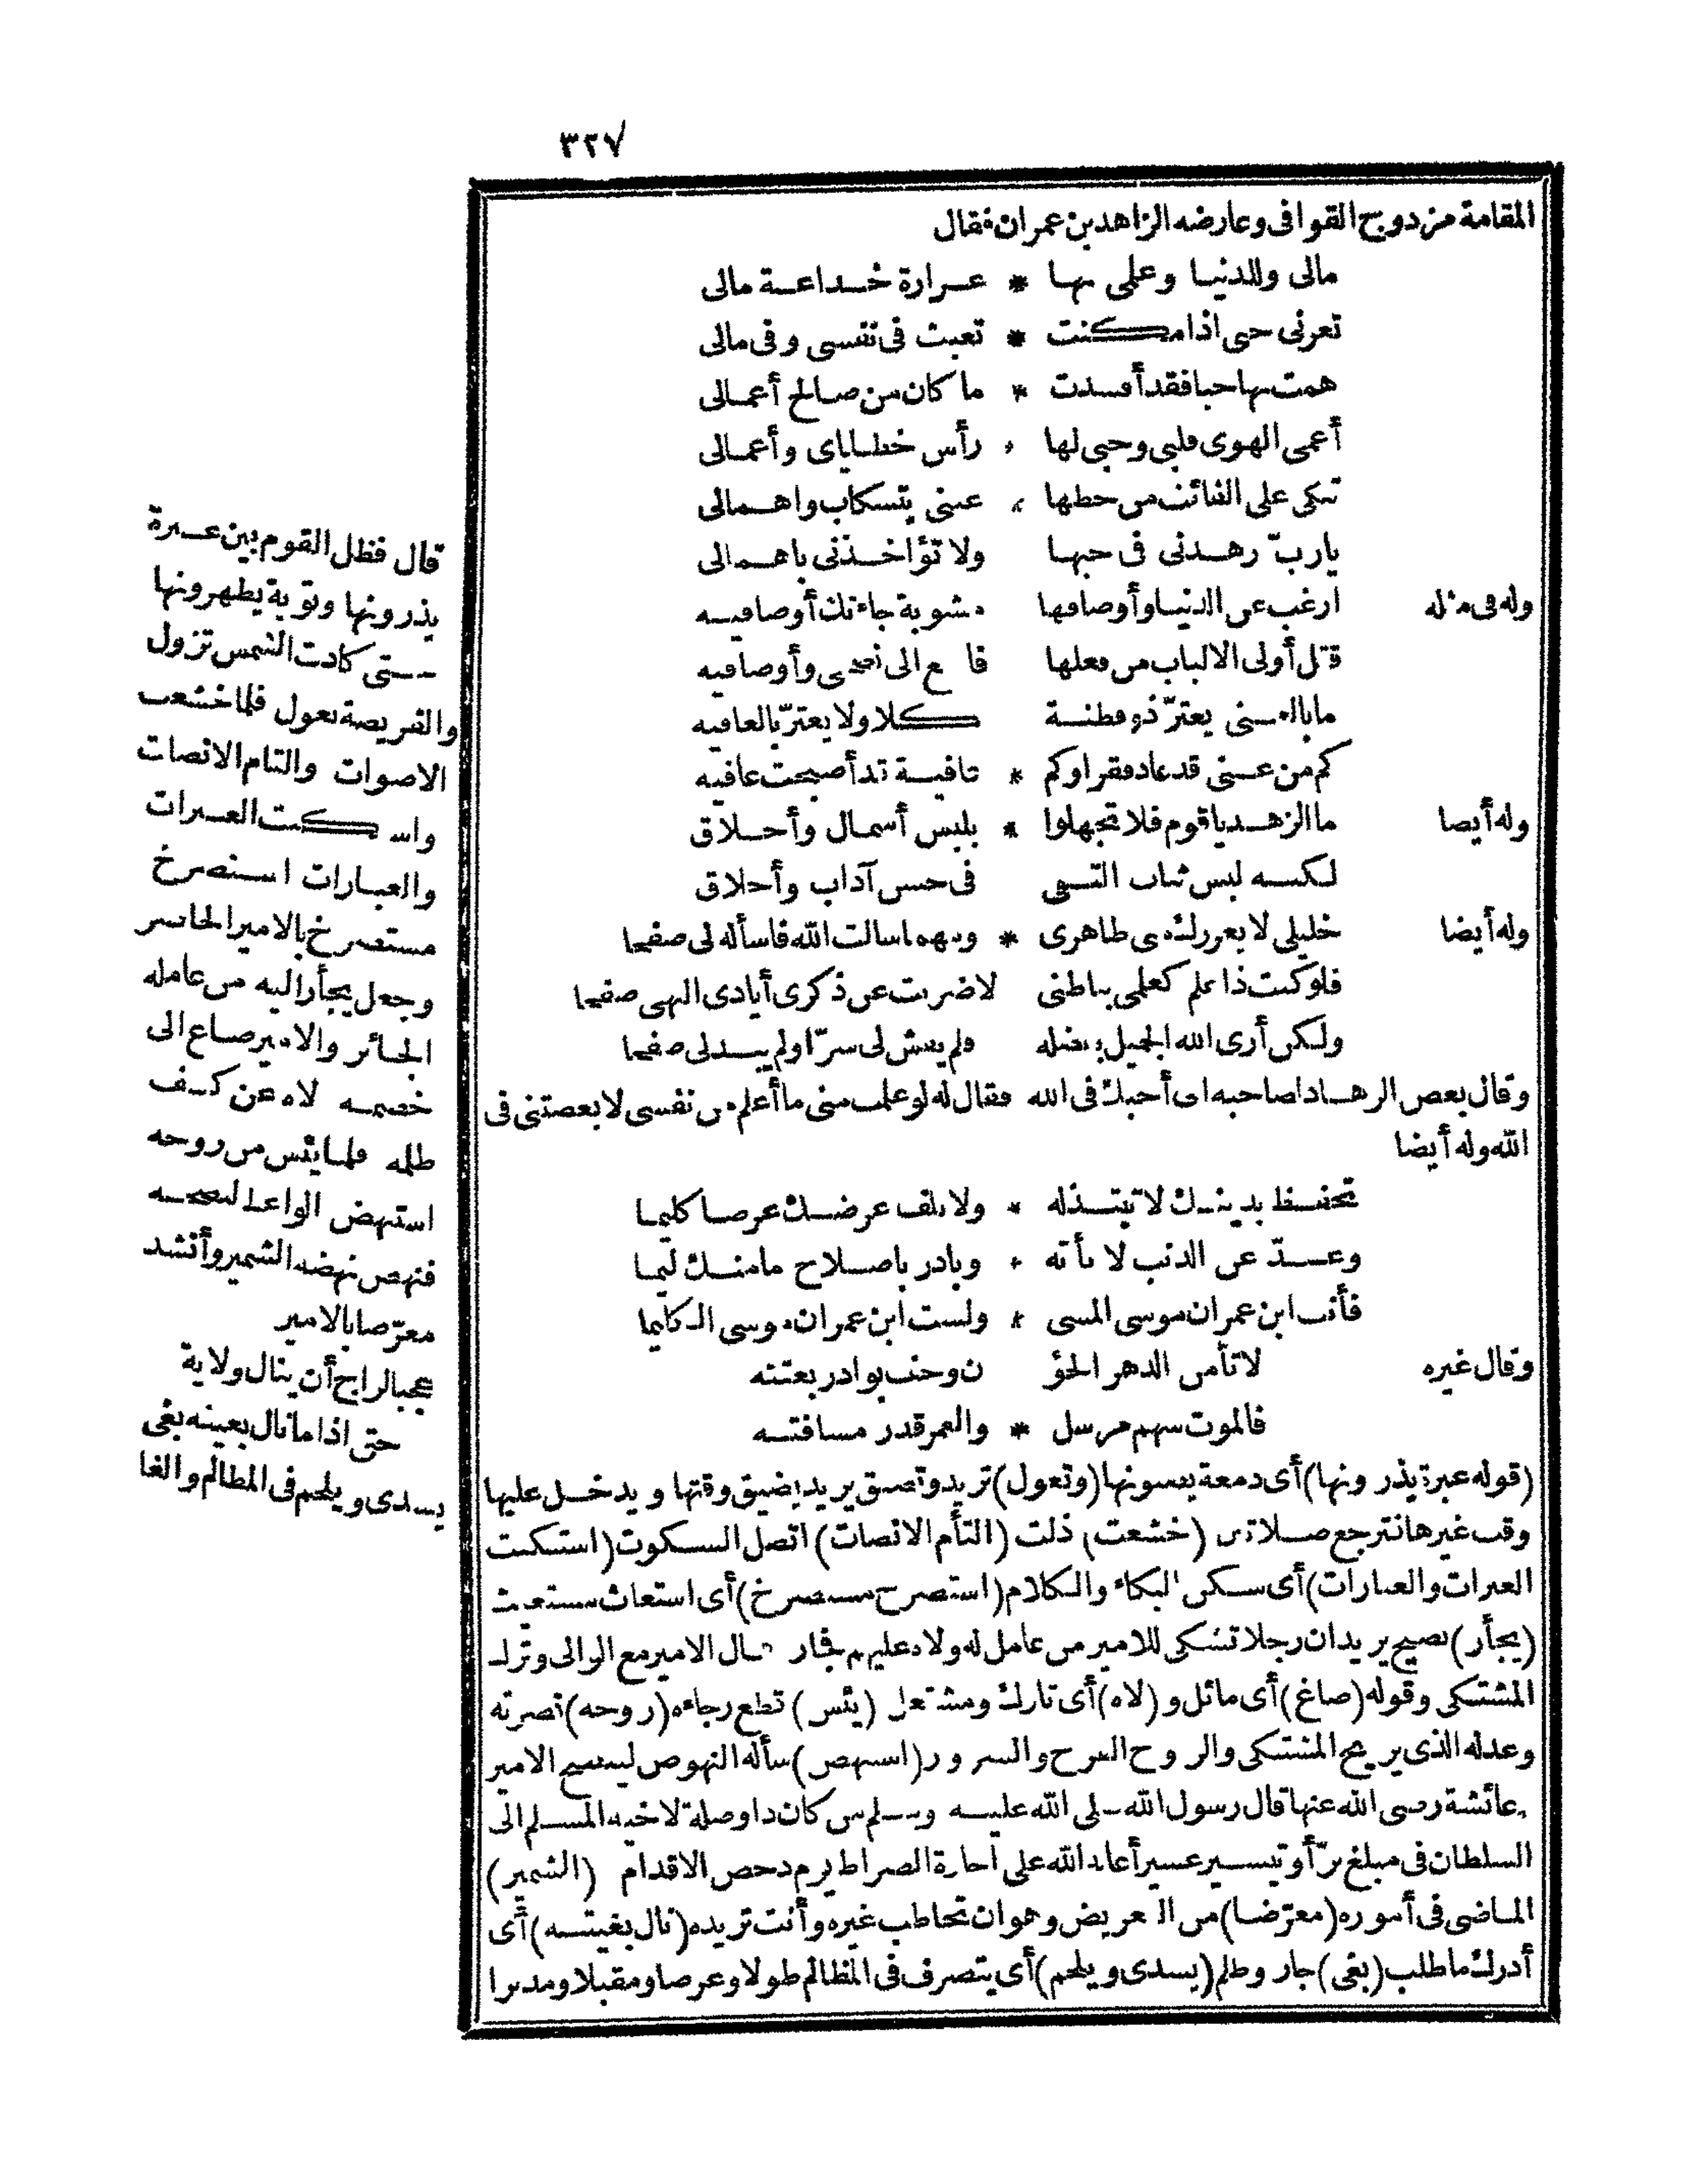 ٣٢٧
المقامة مزدوج القوافى وعارضه الزاهد بن عمران فقال
مالى وللدنيا وعلمى بها * غرارة خداعة مالى
تغرنى حتى اذا مكنت * تعبث فى نفسى وفى مالى
همت بها حبا فقد أفسدت * ما كان من صالح أعمالى
أعمى الهوى قلبى وحبى لها * رأس خطاياى وأعمالى
تبكى على الفائت من حظها * عينى بتسكاب واهمالى
يارب زهدنى فى حبها ولا تؤاخذنى باهمالى
وله فى مثله ارغب عن الدنيا وأوصافها مشوبة جاءتك أوصافيه
قتل أولى الالباب من فعلها الى نصحى وأوصافيه
يغترّ ذو فطنة كلا ولا يغترّ بالعافيه
كم من غنى قد عاد فقرا وكم * قد أصبحت عافيه
وله أيضا ما الزهد ياقوم فلا تجهلوا * بلبس أسمال وأخلاق
لكنه لبس ثياب التقى فى حسن آداب وأخلاق
وله أيضا خليلى لا يغررك من ظاهرى * ومهما سالت الله فاسأله لى صفحا
فلو كنت ذا علم كعلمى بباطنى لاضربت عن ذكرى أيادى الهى صفحا
ولكن أرى الله الجميل بفضله فلم يفش لى سرّا ولم يبد لى صفحا
وقال بعض الزهاد لصاحبه انى أحبك فى الله فقال له لو علمت منى ما أعلم من نفسى لابغضتنى فى
الله وله أيضا
تحفظ بدينك لا تبتذله * ولا تلف عرضك عرضا كليما
وعدّ عن الذنب لا تأته * وبادر باصلاح ما منك ليما
فأنت ابن عمران موسى المسى * ولست ابن عمران موسى الكليما
وقال غيره لا تأمن الدهر الخؤ ن وخف بوادر بغتته
فالموت سهم مرسل * والعمر قدر مسافته
(قوله عبرة يذرونها) أى دمعة يصبونها (وتعول) تزيد وتضيق يريد يضيق وقتها ويدخل عليها
وقت غيرها فترجع صلاتين (خشعت) ذلت (التأم الانصات) اتصل السكوت (استكنت
العبرات والعبارات) أى سكن البكاء والكلام (استصرخ مستصرخ) أى استغاث مستغيث
(يجأر) يصيح يريد ان رجلا تشكى للامير من عامل له ولاه عليهم فجار الامير مع الوالى وترك
المشتكى وقوله (صاغ) أى مائل و (لاه) أى تارك ومشتغل (يئس) قطع رجاءه (روحه) نصرته
وعدله الذى يريح المشتكى والروح الفرح والسرور (استنهض) سأله النهوض لينصح الامير
عائشة رضى الله عنها قال رسول الله صلى الله عليه وسلم من كان ذا وصلة لاخيه المسلم الى
السلطان فى مبلغ برّ أو تيسير عسير أعانه الله على اجازة الصراط يوم دحض الاقدام (الشمير)
الماضى فى أموره (معرّضا) من التعريض وهو ان تخاطب غيره وأنت تريده (نال بغيته) أى
أدرك ما طلب (بغى) جار وظلم (يسدى ويلحم) أى يتصرف فى المظالم طولا وعرضا ومقبلا ومدبرا
قال فظل القوم بين عبرة
يذرونها وتوبة يظهرونها
حتى كادت الشمس تزول
والفريضة تعول فلما خشعت
الاصوات والتام الانصات
واستكنت العبرات
والعبارات استصرخ
مستصرخ بالامير الحاضر
وجعل يجأر اليه من عامله
الجائر والامير صاغ الى
خصمه لاه عن كشف
ظلمه فلما يئس من روحه
استنهض الواعظ لنصحه
فنهض نهضة الشمير وأنشد
معرّضا بالامير
عجبا لراج أن ينال ولاية
حتى اذا ما نال بغيته بغى
يسدى ويلحم فى المظالم والغا